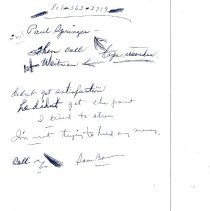 801-363-2719
2nd Paul Springer -
then call
Tape recorder
1st Weitman
didnt get satisfaction
he didnt get the point
I tried to stress
I'm not trying to hold any money
Call